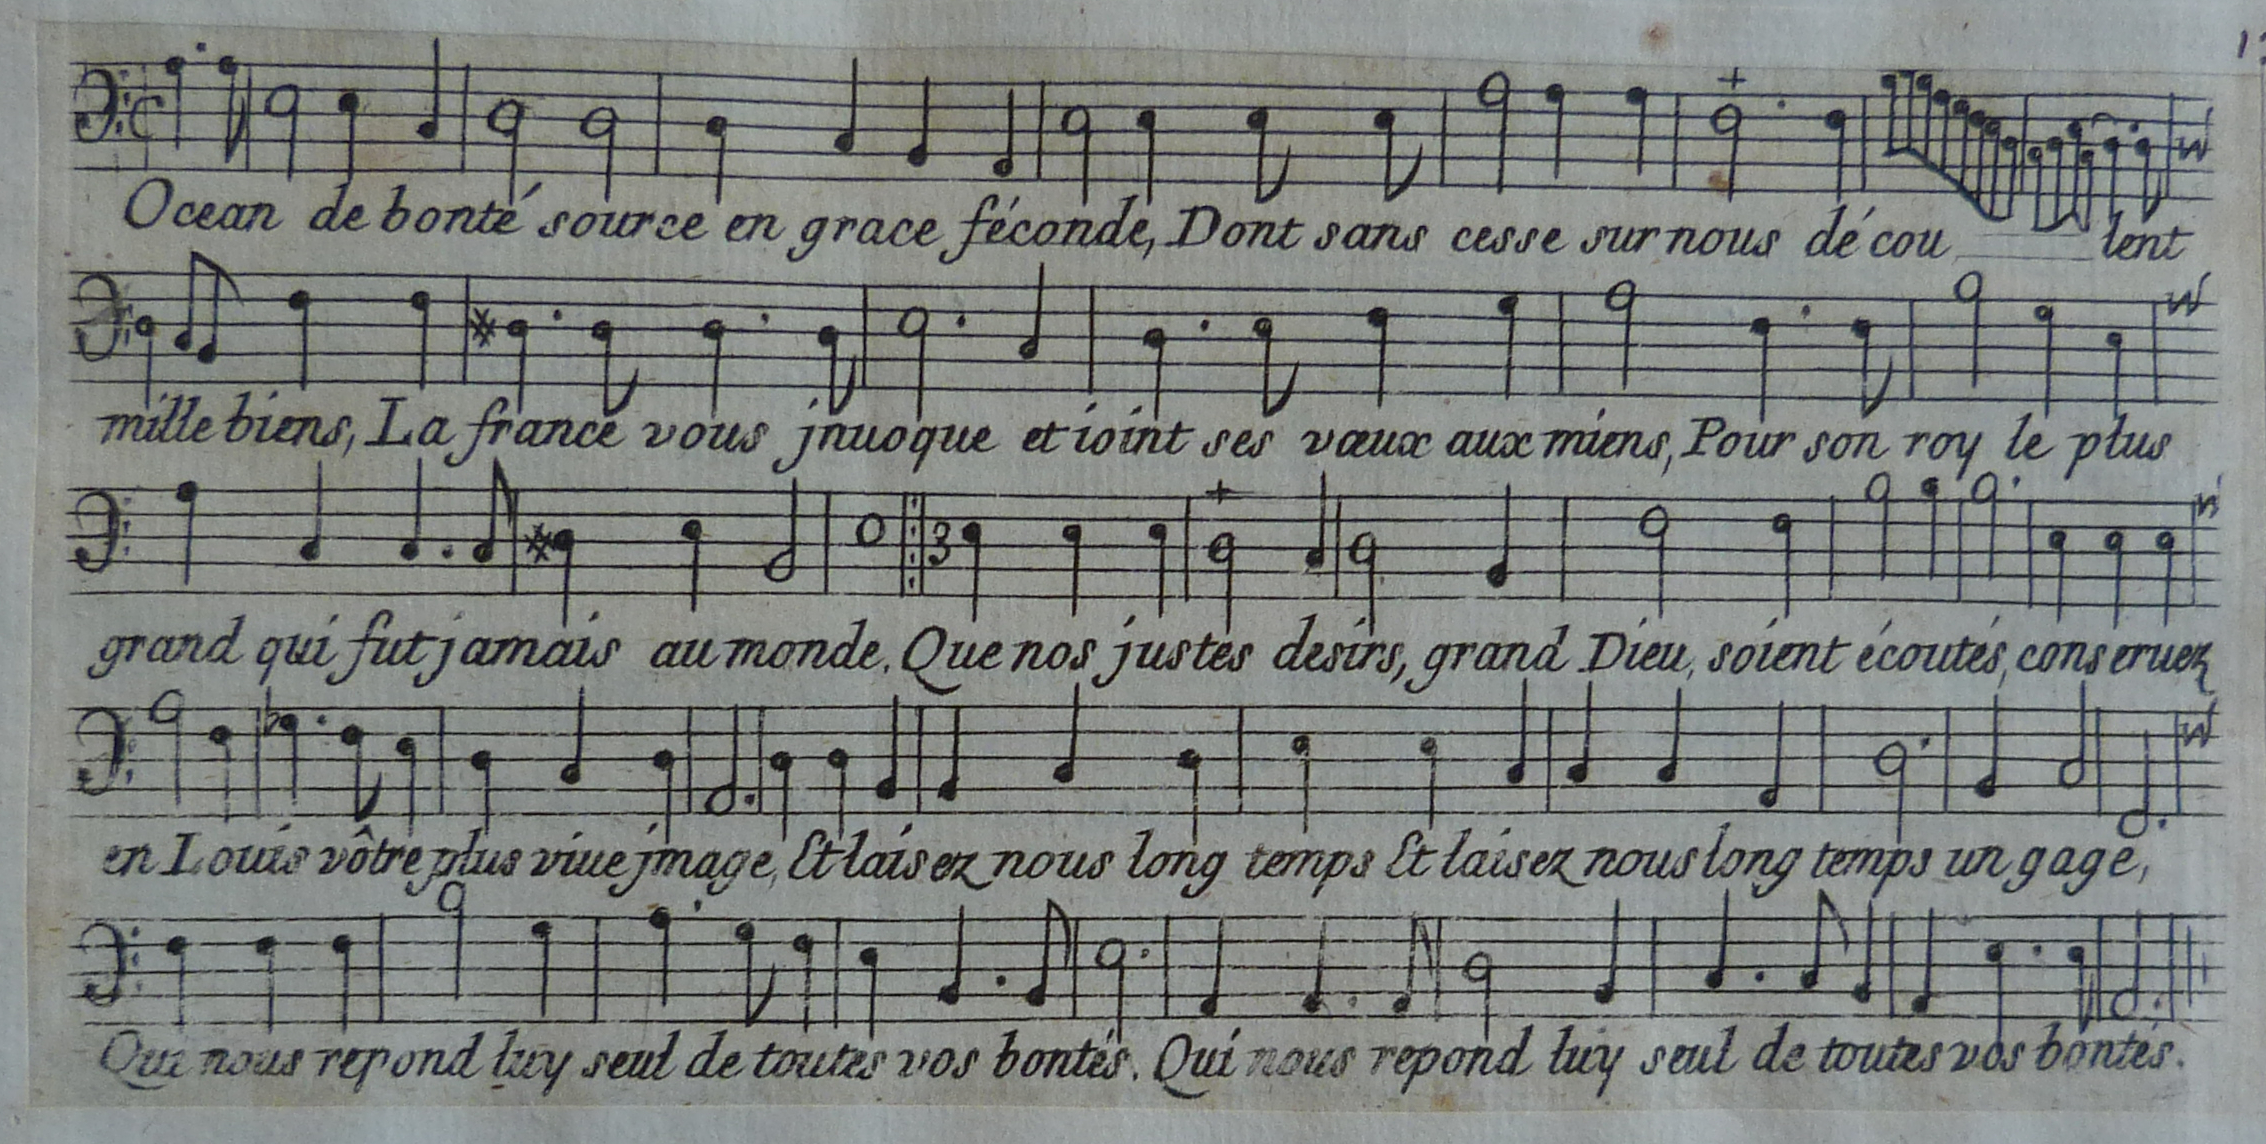 Ocean de bonté source en grace féconde, Dont sans cesse sur nous dé cou lent
mille biens, La france vous jnuoque et ioint ses vœux aux miens, Pour son roy le plus
grand qui fut jamais au monde. Que nos justes desirs, grand Dieu, soient écoutés, conseruez
en Louis vôtre plus viue jmage, Et laisez nous long temps Et laisez nous long temps un gage,
Qui nous repond luy seul de toutes vos bontés. Qui nous repond luy seul de toutes vos bontés.